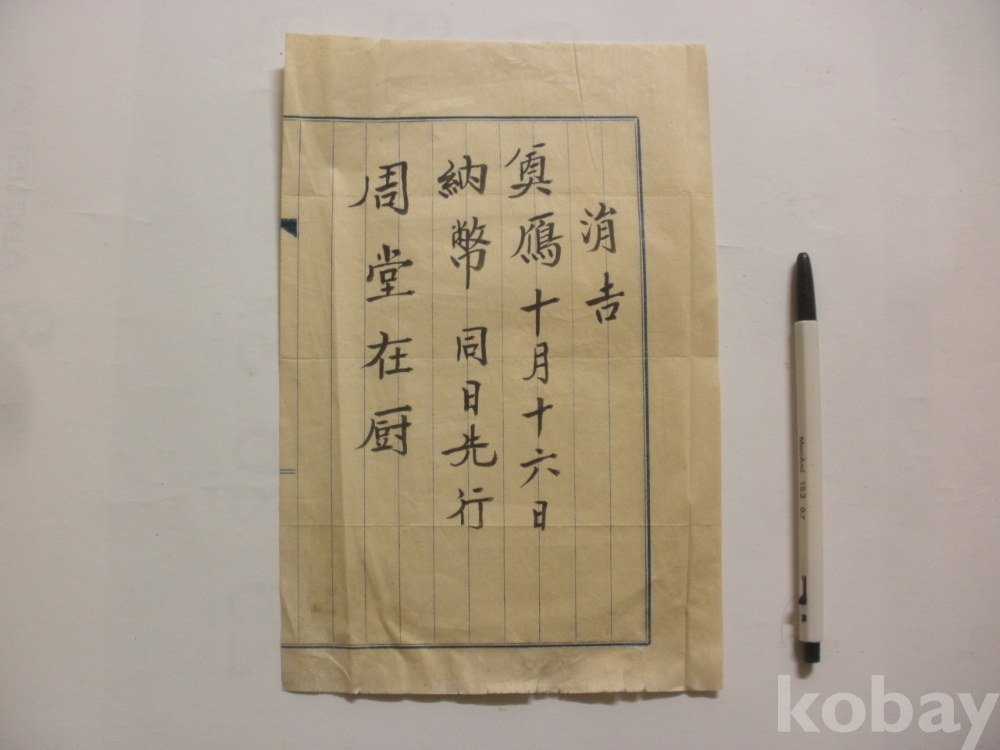 涓吉
奠鴈十月十六日
納幣 同日先行
周堂在厨
MonAmi 153 0.7
kobay